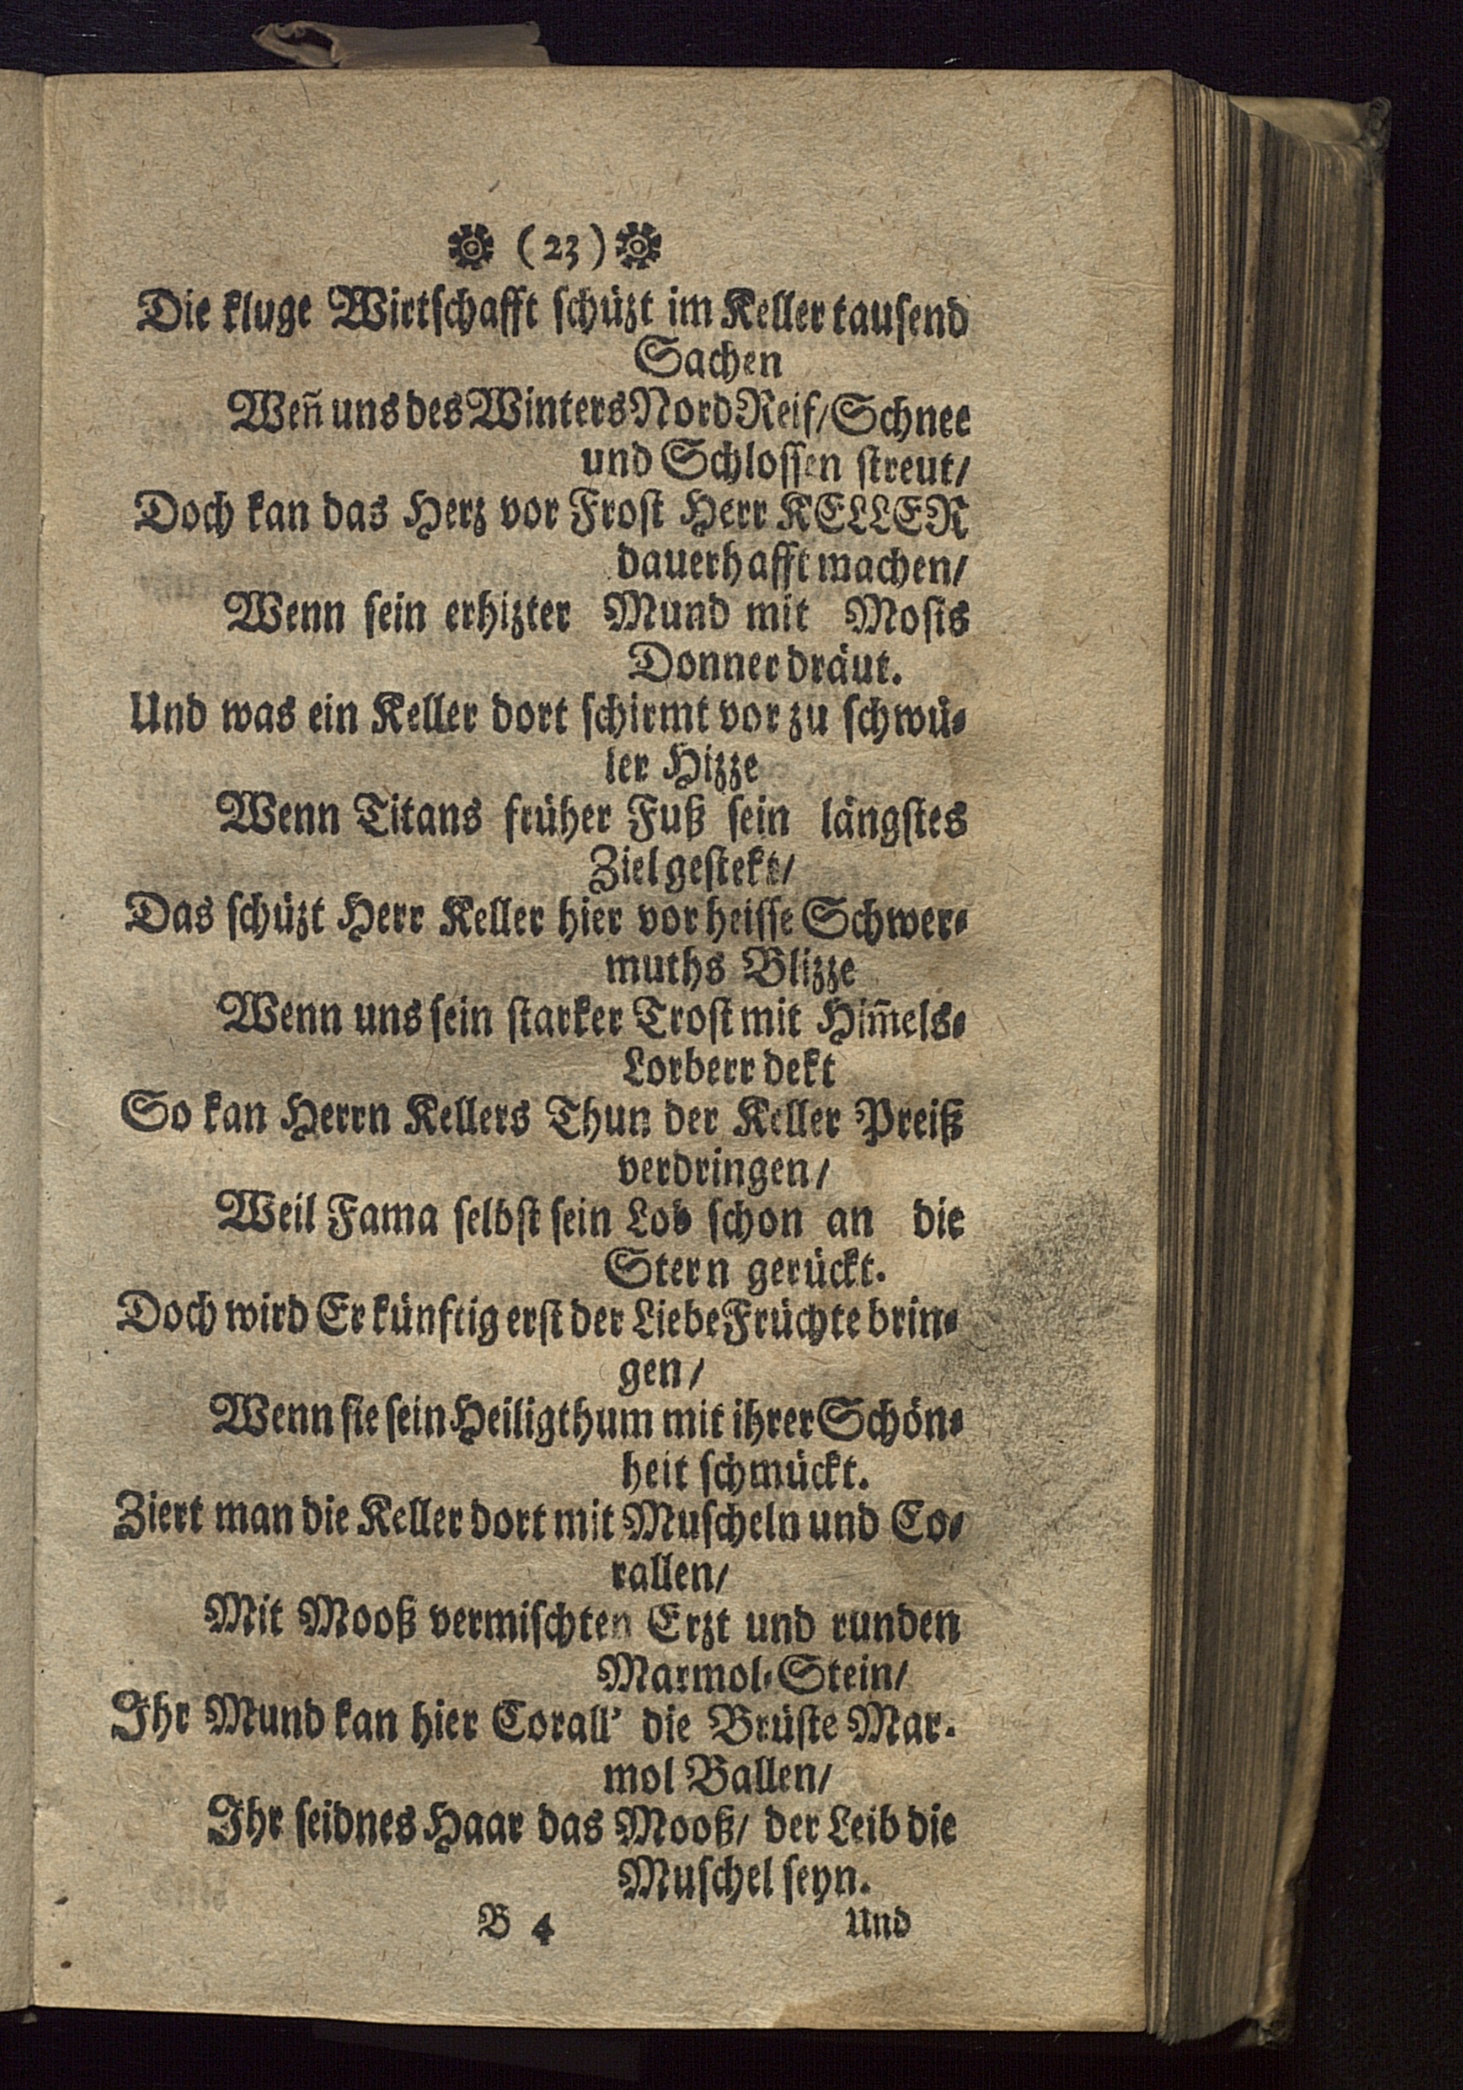 (23)
Die kluge Wirtschafft schüzt im Keller tausend
Sachen
Weñ uns des Winters Nord Reif/ Schnee
und Schlossen streut/
Doch kan das Herz vor Frost Herr KELLER
dauerhafft machen/
Wenn sein erhizter Mund mit Mosis
Donner dräut.
Und was ein Keller dort schirmt vor zu schwü-
ler Hizze
Wenn Titans früher Fuß sein längstes
Ziel gestekt/
Das schüzt Herr Keller hier vor heisse Schwer-
muths Blizze
Wenn uns sein starker Trost mit Him̃els-
Lorberr dekt
So kan Herrn Kellers Thun der Keller Preiß
verdringen/
Weil Fama selbst sein Lob schon an die
Stern gerückt.
Doch wird Er künftig erst der Liebe Früchte brin-
gen/
Wenn sie sein Heiligthum mit ihrer Schön-
heit schmückt.
Ziert man die Keller dort mit Muscheln und Co-
rallen/
Mit Mooß vermischten Erzt und runden
Marmol-Stein/
Ihr Mund kan hier Corall' die Brüste Mar-
mol Ballen/
Ihr seidnes Haar das Mooß/ der Leib die
Muschel seyn.
B 4 Und